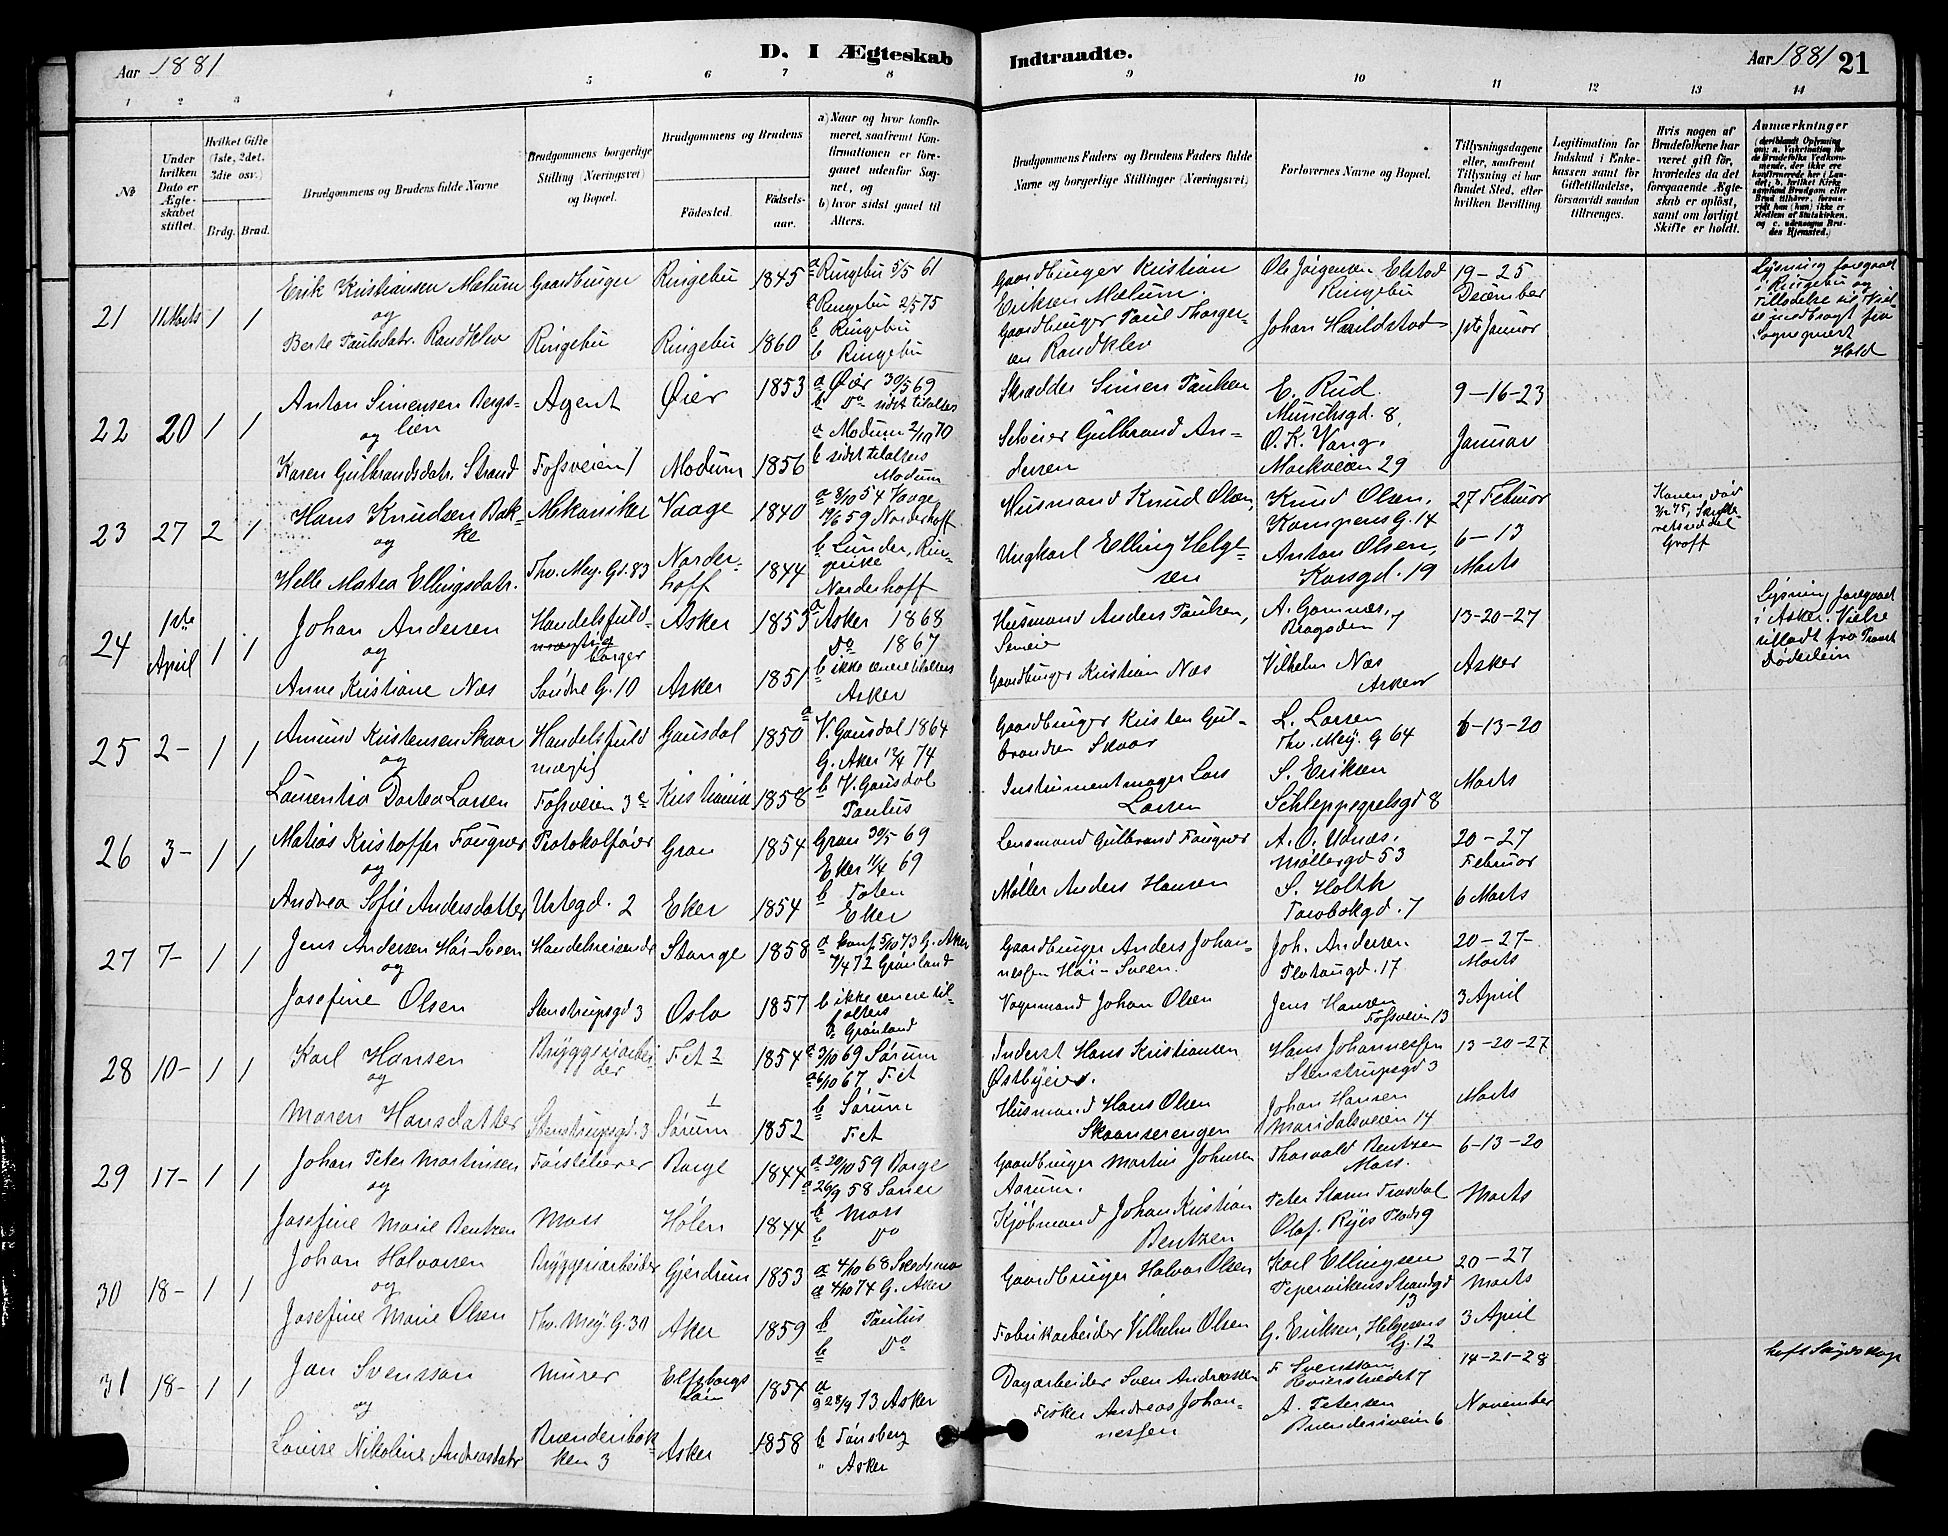 Aar 1881
D. I Ægteskab Indtraadte.
Aar 1881 21
1 2 3 4 5 6 7 8 9 10 11 12 13 14
No
Under hvilken Dato er Ægteskabet stiftet.
Hvilket Gifte (1ste, 2det, 3die osv.)
Brdg. Brud.
Brudgommens og Brudens fulde Navne
Brudgommens borgerlige Stilling (Næringsvei) og Bopæl.
Brudgommens og Brudens
Fødested.
Fødselsaar.
a) Naar og hvor konfirmeret, saafremt Konfirmationen er foregaaet udenfor Sognet, og
b) hvor sidst gaaet til Alters.
Brudgommens Faders og Brudens Faders fulde Navne og borgerlige Stillinger (Næringsvei)
Forlovernes Navne og Bopæl.
Tillysningsdagene eller, saafremt Tillysning ei har fundet Sted, efter hvilken Bevilling.
Legitimation for Indskud i Enkekassen samt for Giftetilladelse, forsaavidt saadan tiltrænges.
Hvis nogen af Brudefolkene har været gift før, hvorledes da det foregaaende Ægteskab er opløst, samt om lovligt Skifte er holdt.
Anmærkninger
21 11 Marts 1 1
Erik Kristiansen Mælum Gaardbruger Ringebu 1845 a Ringebu 5/5 61
og
Berte Paulsdatr. Randklev Ringebu Ringebu 1860 a Ringebu 2/5 75
b Ringebu
b Ringebu
Gaardbruger Kristian Eriksen Mælum.
Gaardbruger Paul Thorgersen Randklev
Ole Jørgensen Elstad Ringebu
Johan Harildstad
19-25 December
1ste Januar
Lysning foregaaet i Ringebu og Tilladelse til Vielse medbragt fra Sognepræst Hald
22 20 1 1
Anton Simensen Bergslien Agent Øier 1853 a Øier 30/5 69
og
b Do sidst tilalters
Karen Gulbrandsdatr. Strand Fossveien 1 Modum 1856 a Modum 2/10 70
b sidst tilalters Modum
Skrædder Simen Paulsen
Selveier Gulbrand Andersen
E. Rud. Munchsgd. 8,
O. K. Vang. Markveien 29
9-16-23 Januar
23 27 2 1
Hans Knudsen Bakke Mekaniker Vaage 1840 a 8/10 54 Vaage
og
Helle Matea Ellingsdatr. Thv. Mey. Gd. 83 Norderhoff 1844 19/6 59 Norderhoff
b Lunder, Ringerike
Norderhoff
Husmand Knud Olsen,
Ungkarl Elling Helgesen
Knud Olsen, Kampens G. 14
Anton Olsen, Korsgd. 19
27 Februar
6-13 Marts
24 1ste April 1 1
Johan Andersen Handelsfuldmægtig borger Asker 1853 a Asker 1868
og
Anne Kristiane Næs Søndre G. 10 Asker 1851 Do 1867
b ikke senere tilalters
Asker
Husmand Anders Paulsen, Semeie
Gaardbruger Kristian Næs
Vilhelm Næs Asker
13-20-27 Asker
Lysning foregaaet i Asker. Vielse tilladt fra Provst Døderlein
25 2- 1 1
Amund Kristensen Skaar Handelsfuldmægtig Gausdal 1850 a V. Gausdal 1864
og
Laurentia Dortea Larsen Fossveien 3c Kristiania 1858 G. Aker 12/4 74
b V. Gausdal
Paulus
Gaardbruger Kristen Gulbrandsen Skaar
Instrumentmager Lars Larsen
L. Larsen Thv. Mey. G 64
S. Eriksen Schleppegrelsgd 8
6-13-20 Marts
26 3- 1 1
Matias Kristoffer Fougner Protokolfører Gran 1854 Gran 30/5 69
og
Andrea Sofie Andersdatter Urtegd. 2 Eker 1854 Eker 11/4 69
b Toten
Eker
Lensmand Gulbrand Fougner
Møller Anders Hansen
A. O. Udnæs, Møllergd 53
S. Holth
20-27 Februar
6 Marts
27 7- 1 1
Jens Andersen Høi-Sveen Handelsreisende Stange 1858 a konf 5/10 73 G. Aker
og
Josefine Olsen Stenstrupsgd 3 Oslo 1857 7/4 72 Grønland
b ikke senere tilalters
b Grønland
Gaardbruger Anders Johannessen Høi-Sveen.
Vognmand Johan Olsen
Joh. Andersen Platougd. 17
Jens Hansen Fossveien 13
20-27- Marts
3 April
28 10- 1 1
Karl Hansen Bryggeriarbeider Fet 2 1854 a 3/10 69 Sørum
og
Maren Hansdatter Stenstrupsgd. 3 Sørum 1 1852 a 6/10 67 Fet
b Sørum
Fet
Inderst Hans Kristiansen Østbyeier.
Husmand Hans Olsen Skaanserengen
Hans Johannessen Stenstrupsgd 3
Johan Hansen Maridalsveien 14
13-20-27 Marts
29 17- 1 1
Johan Peter Martinsen Førstelærer Borge 1844 a 20/10 59 Borge
og
Josefine Marie Bentzen Moss Hølen 1844 a 26/9 58 Saner
b Moss
b Do
Gaardbruger Martin Johnsen Aarum.
Kjøbmand Johan Kristian Bentzen
Thorvald Bentzen Moss.
Olaf. Ryes Plads 9
6-13-20 Marts
30 18- 1 1
Johan Halvorsen Bryggeriarbeider Gjerdrum 1853 a 4/10 68 Skedsmo
og
Josefine Marie Olsen Thv. Mey G. 30 Aker 1859 a 4/10 74 G. Aker
b Paulus
b Do
Gaardbruger Halvor Olsen
Fabrikarbeider Vilhelm Olsen
Karl Ellingsen Pipervikens Strandgd 13
G. Eriksen, Helgesens G. 12
20-27 Marts
3 April
31 18- 1 1
Jan Svensson Murer Elfsborgs Län 1854 a
og
Lovise Nikoline Andreasdatr Brænderibakken 3 Asker 1858 a 28/9 73 Asker
b Tønsberg
" Asker
Dagarbeider Sven Andreassen
Fisker Andreas Johannessen
F Svensson
A. Petersen Brænderiveien 6
14-21-28 November